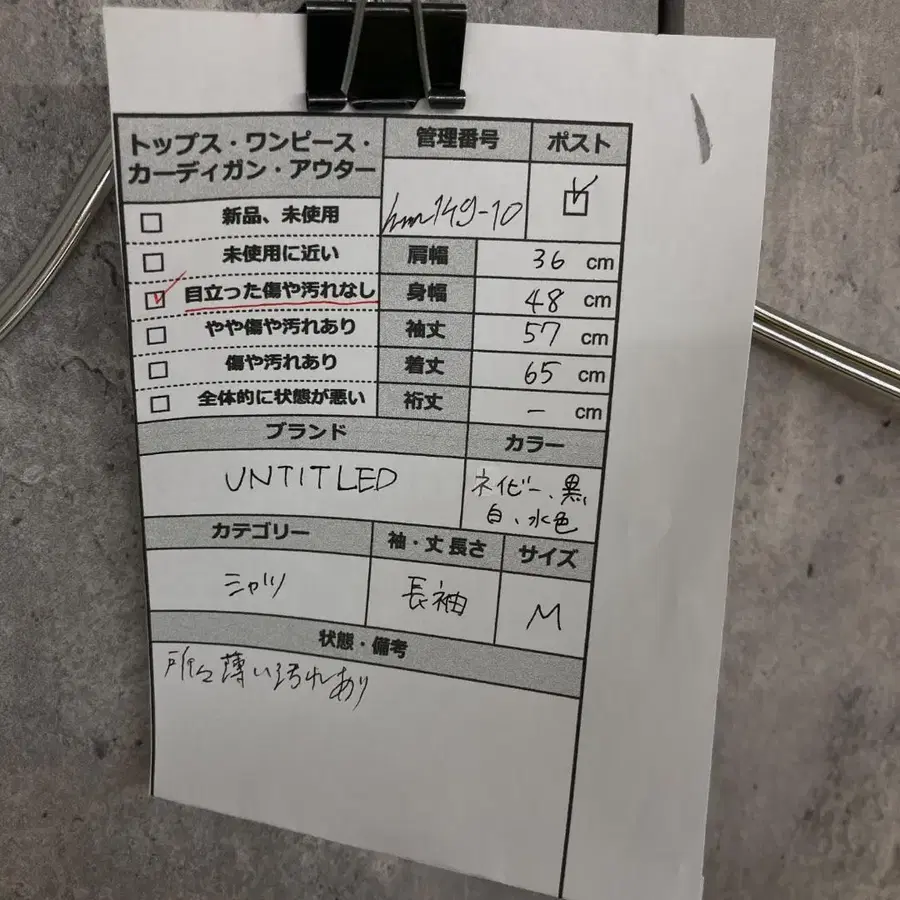 トップス・ワンピース・
カーディガン・アウター
管理番号
ポスト
hm149-10
新品、未使用
未使用に近い
目立った傷や汚れなし
やや傷や汚れあり
傷や汚れあり
全体的に状態が悪い
肩幅 36 cm
身幅 48 cm
袖丈 57 cm
着丈 65 cm
裄丈 ー cm
ブランド
カラー
UNTITLED
ネイビー、黒、
白、水色
カテゴリー
袖・丈 長さ
サイズ
シャツ
長袖
M
状態・備考
所々薄い汚れあり